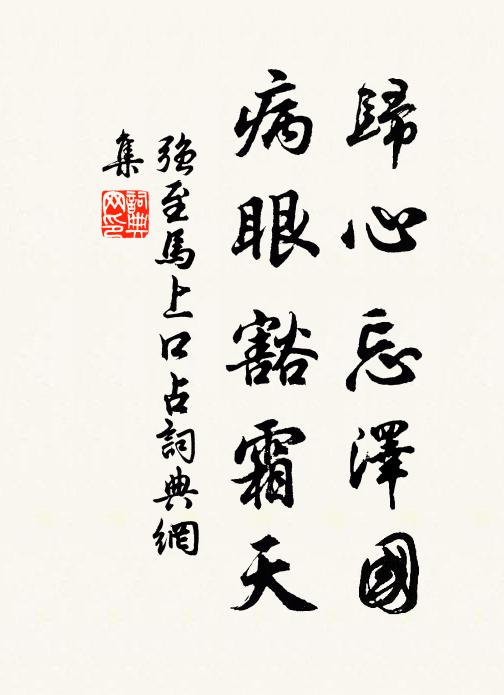 歸心忘澤國
病眼豁霜天
強至馬上口占詞典網
集
詞典网印